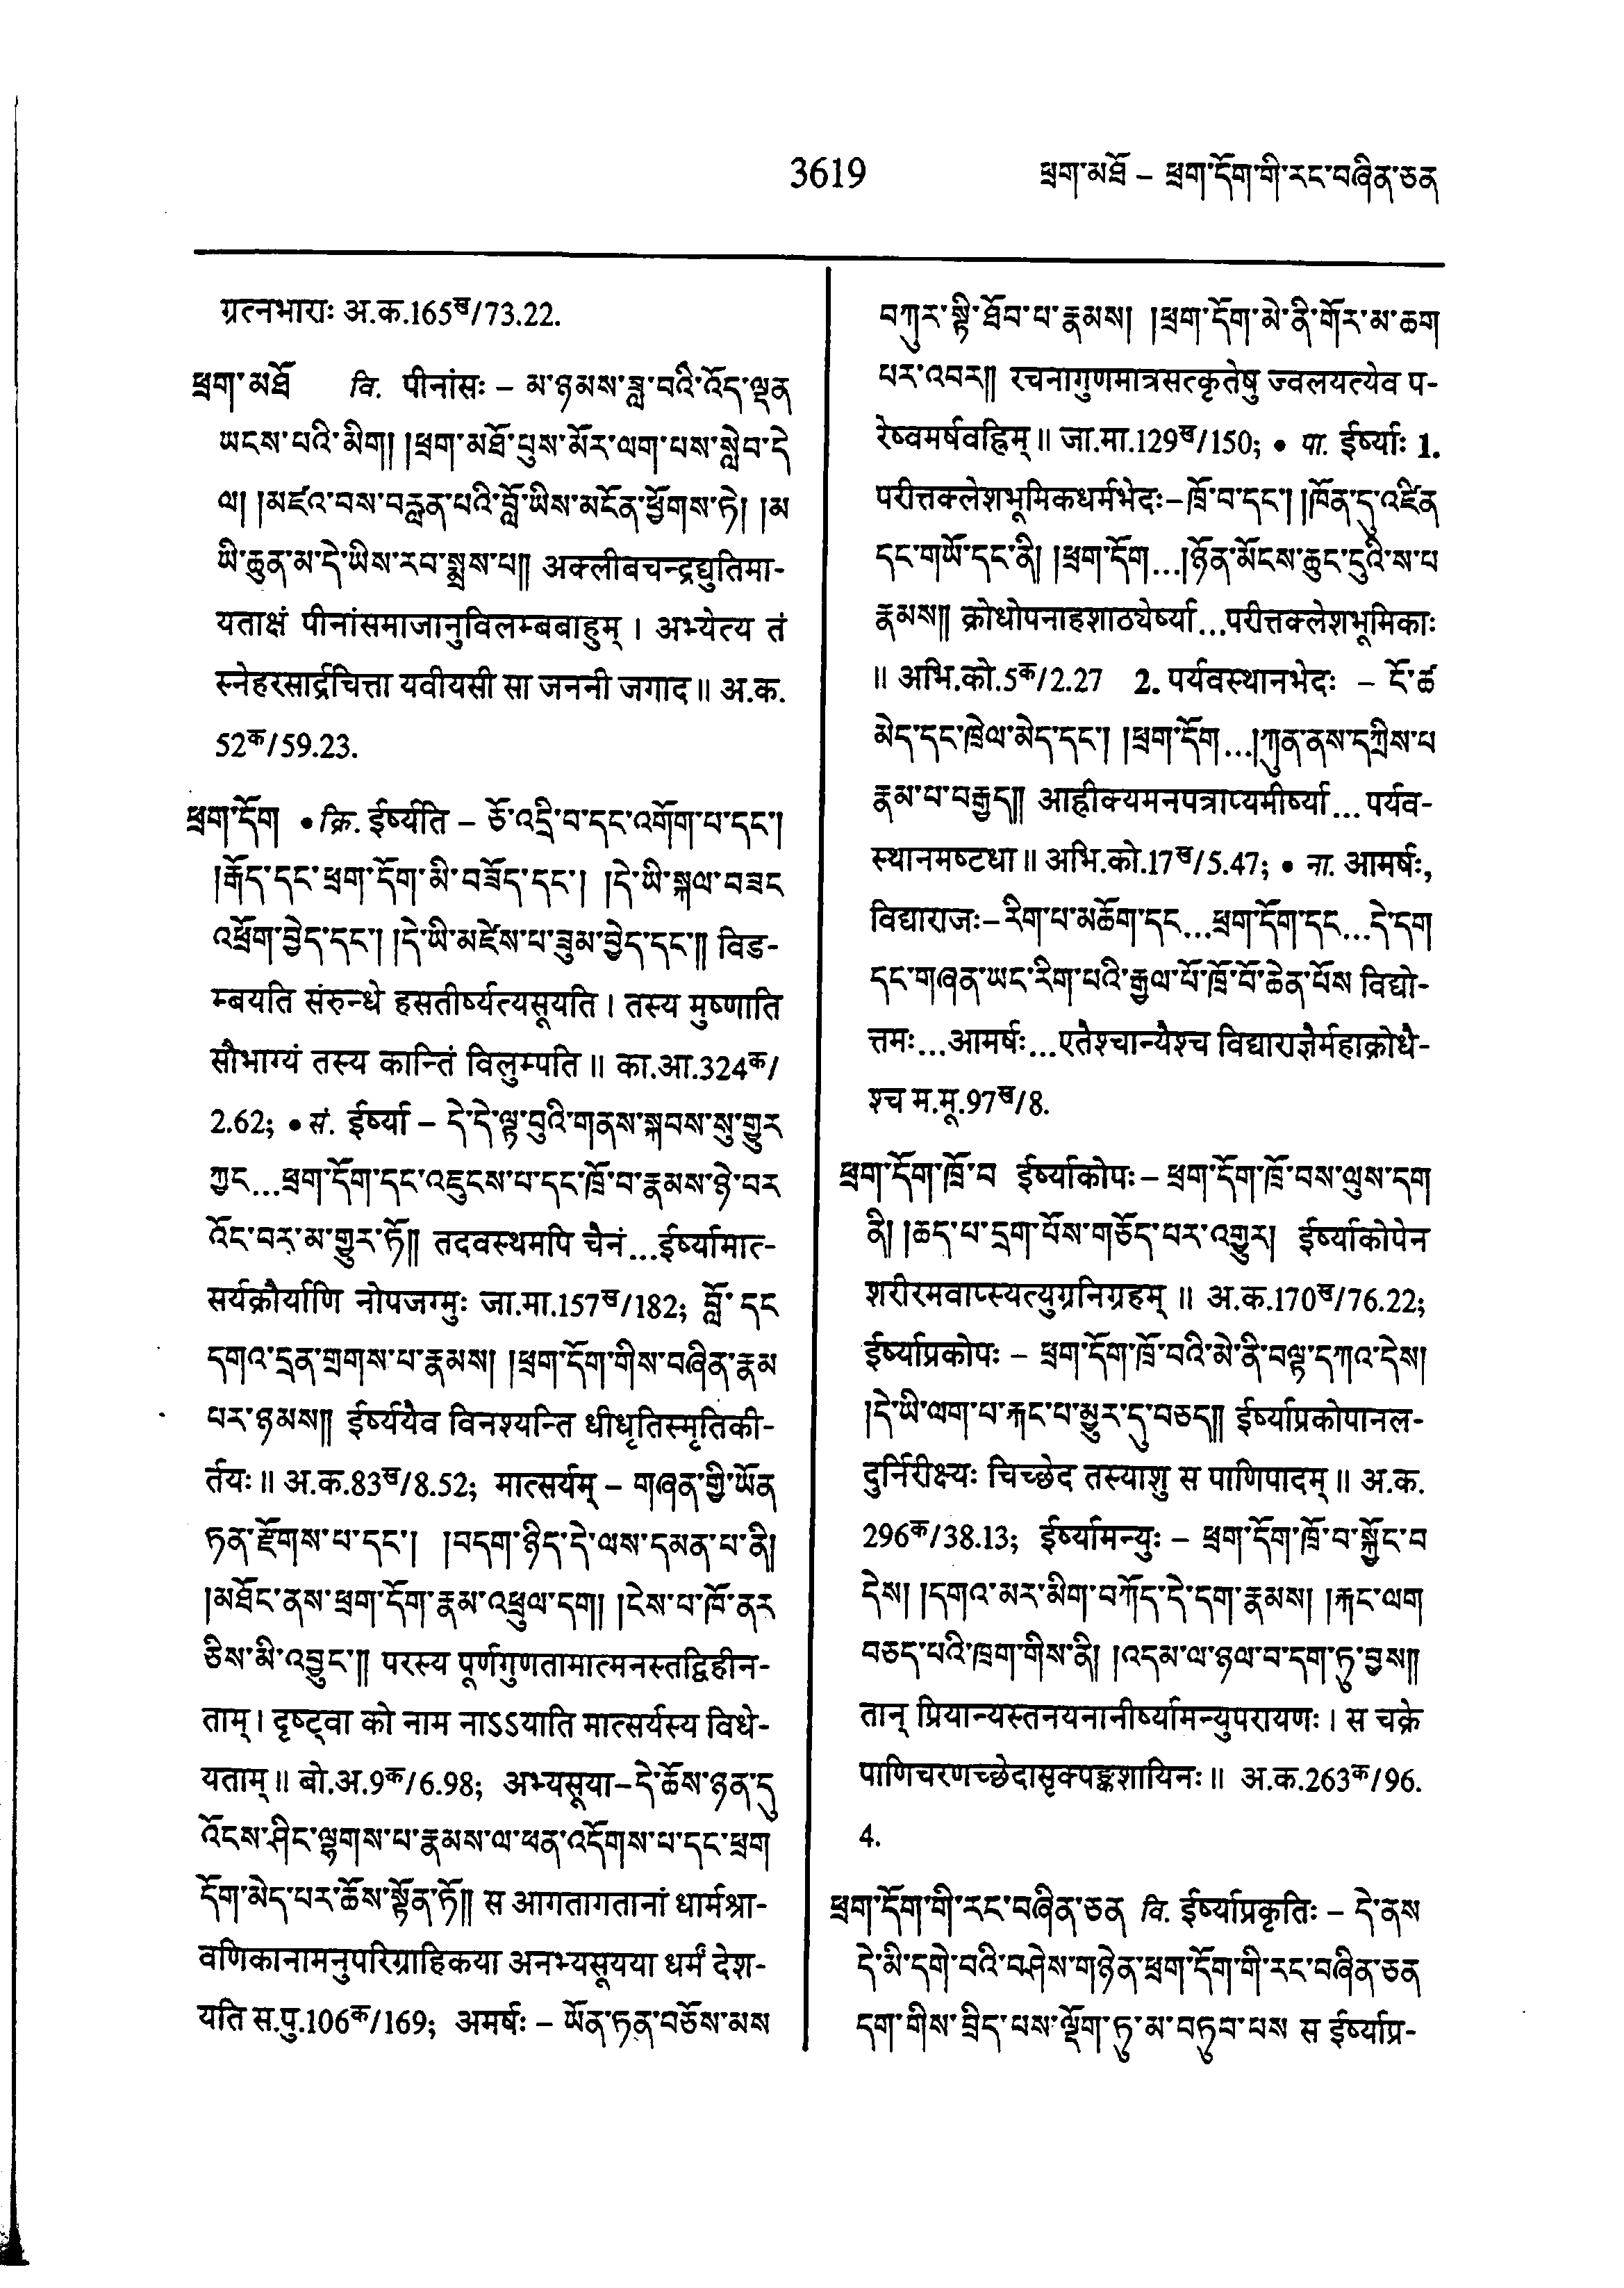 3619
ཕྲག་མཐོ – ཕྲག་དོག་གི་རང་བཞིན་ཅན
ग्रत्नभाराः अ.क.165ख/73.22.
ཕྲག་མཐོ वि. पीनांसः – མ་ཉམས་ཟླ་བའི་འོད་ལྡན
ཡངས་པའི་མིག། །ཕྲག་མཐོ་པུས་མོར་ལག་པས་སླེབ་དེ
ལ། །མཛའ་བས་བརླན་པའི་བློ་ཡིས་མངོན་ཕྱོགས་ཏེ། །མ
ཡི་ཆུན་མ་དེ་ཡིས་རབ་སྨྲས་པ།། अक्लीबचन्द्रद्युतिमा-
यताक्षं पीनांसमाजानुविलम्बबाहुम् । अभ्येत्य तं
स्नेहरसार्द्रचित्ता यवीयसी सा जननी जगाद ॥ अ.क.
52क/59.23.
ཕྲག་དོག • क्रि. ईर्ष्यति – ཅོ་འདྲི་བ་དང་འགོག་པ་དང་།
།རྒོད་དང་ཕྲག་དོག་མི་བཟོད་དང་། །དེ་ཡི་སྐལ་བཟང
འཕྲོག་བྱེད་དང་། །དེ་ཡི་མཛེས་པ་ཟུམ་བྱེད་དང་།། विड-
म्बयति संरुन्धे हसतीर्ष्यत्यसूयति । तस्य मुष्णाति
सौभाग्यं तस्य कान्तिं विलुम्पति ॥ का.आ.324क/
2.62; • सं. ईर्ष्या – དེ་དེ་ལྟ་བུའི་གནས་སྐབས་སུ་གྱུར
ཀྱང...ཕྲག་དོག་དང་འཇུངས་པ་དང་ཁྲོ་བ་རྣམས་ཉེ་བར
འོང་བར་མ་གྱུར་ཏོ།། तदवस्थमपि चैनं...ईर्ष्यामात्-
सर्यक्रौर्याणि नोपजग्मुः जा.मा.157ख/182; བློ་ དང
དགའ་དྲན་གྲགས་པ་རྣམས། །ཕྲག་དོག་གིས་བཞིན་རྣམ
པར་ཉམས།། ईर्ष्ययैव विनश्यन्ति धीधृतिस्मृतिकी-
र्तयः ॥ अ.क.83ख/8.52; मात्सर्यम् – གཞན་གྱི་ཡོན
ཏན་རྫོགས་པ་དང་། །བདག་ཉིད་དེ་ལས་དམན་པ་ནི།
།མཐོང་ནས་ཕྲག་དོག་རྣམ་འཕྲུལ་དག། །ངེས་པ་ཁོ་ནར
ཅིས་མི་འབྱུང་།། परस्य पूर्णगुणतामात्मनस्तद्विहीन-
ताम् । दृष्ट्वा को नाम नाऽऽयाति मात्सर्यस्य विधे-
यताम् ॥ बो.अ.9क/6.98; अभ्यसूया – དེ་ཆོས་ཉན་དུ
འོངས་ཤིང་ལྷགས་པ་རྣམས་ལ་ཕན་འདོགས་པ་དང་ཕྲག
དོག་མེད་པར་ཆོས་སྟོན་ཏོ།། स आगतागतानां धार्मश्रा-
वणिकानामनुपरिग्राहिकया अनभ्यसूयया धर्मं देश-
यति स.पु.106क/169; अमर्षः – ཡོན་ཏན་བཅོས་མས
བཀུར་སྟི་ཐོབ་པ་རྣམས། །ཕྲག་དོག་མེ་ནི་གོར་མ་ཆག
པར་འབར།། रचनागुणमात्रसत्कृतेषु ज्वलयत्येव प-
रेष्वमर्षवह्निम् ॥ जा.मा.129ख/150; • पा. ईर्ष्याः 1.
परीत्तक्लेशभूमिकधर्मभेदः – ཁྲོ་བ་དང་། །ཁོན་དུ་འཛིན
དང་གཡོ་དང་ནི། །ཕྲག་དོག...།ཉོན་མོངས་ཆུང་ངུའི་ས་པ
རྣམས།། क्रोधोपनाहशाठ्येर्ष्या...परीत्तक्लेशभूमिकाः
॥ अभि.को.5क/2.27 2. पर्यवस्थानभेदः – ངོ་ཚ
མེད་དང་ཁྲེལ་མེད་དང་། །ཕྲག་དོག...།ཀུན་ནས་དཀྲིས་པ
རྣམ་པ་བརྒྱད།། आह्रीक्यमनपत्राप्यमीर्ष्या...पर्यव-
स्थानमष्टधा ॥ अभि.को.17ख/5.47; • ना. आमर्षः,
विद्याराजः – རིག་པ་མཆོག་དང...ཕྲག་དོག་དང...དེ་དག
དང་གཞན་ཡང་རིག་པའི་རྒྱལ་པོ་ཁྲོ་བོ་ཆེན་པོས विद्यो-
त्तमः...आमर्षः...एतैश्चान्यैश्च विद्याराज्ञैर्महाक्रोधै-
श्च म.मू.97ख/8.
ཕྲག་དོག་ཁྲོ་བ ईर्ष्याकोपः – ཕྲག་དོག་ཁྲོ་བས་ལུས་དག
ནི། །ཆད་པ་དྲག་པོས་གཅོད་པར་འགྱུར། ईर्ष्याकोपेन
शरीरमवाप्स्यत्युग्रनिग्रहम् ॥ अ.क.170ख/76.22;
ईर्ष्याप्रकोपः – ཕྲག་དོག་ཁྲོ་བའི་མེ་ནི་བལྟ་དཀའ་དེས།
།དེ་ཡི་ལག་པ་རྐང་པ་མྱུར་དུ་བཅད།། ईर्ष्याप्रकोपानल-
दुर्निरीक्ष्यः चिच्छेद तस्याशु स पाणिपादम् ॥ अ.क.
296क/38.13; ईर्ष्यामन्युः – ཕྲག་དོག་ཁྲོ་བ་སྐྱོང་བ
དེས། །དགའ་མར་མིག་བཀོད་དེ་དག་རྣམས། །རྐང་ལག
བཅད་པའི་ཁྲག་གིས་ནི། །འདམ་ལ་ཉལ་བ་དག་ཏུ་བྱས།།
तान् प्रियान्यस्तनयनानीर्ष्यामन्युपरायणः । स चक्रे
पाणिचरणच्छेदासृक्पङ्कशायिनः ॥ अ.क.263क/96.
4.
ཕྲག་དོག་གི་རང་བཞིན་ཅན वि. ईर्ष्याप्रकृतिः – དེ་ནས
དེ་མི་དགེ་བའི་བཤེས་གཉེན་ཕྲག་དོག་གི་རང་བཞིན་ཅན
དག་གིས་བྲིད་པས་ལྡོག་ཏུ་མ་བཏུབ་པས स ईर्ष्याप्र-